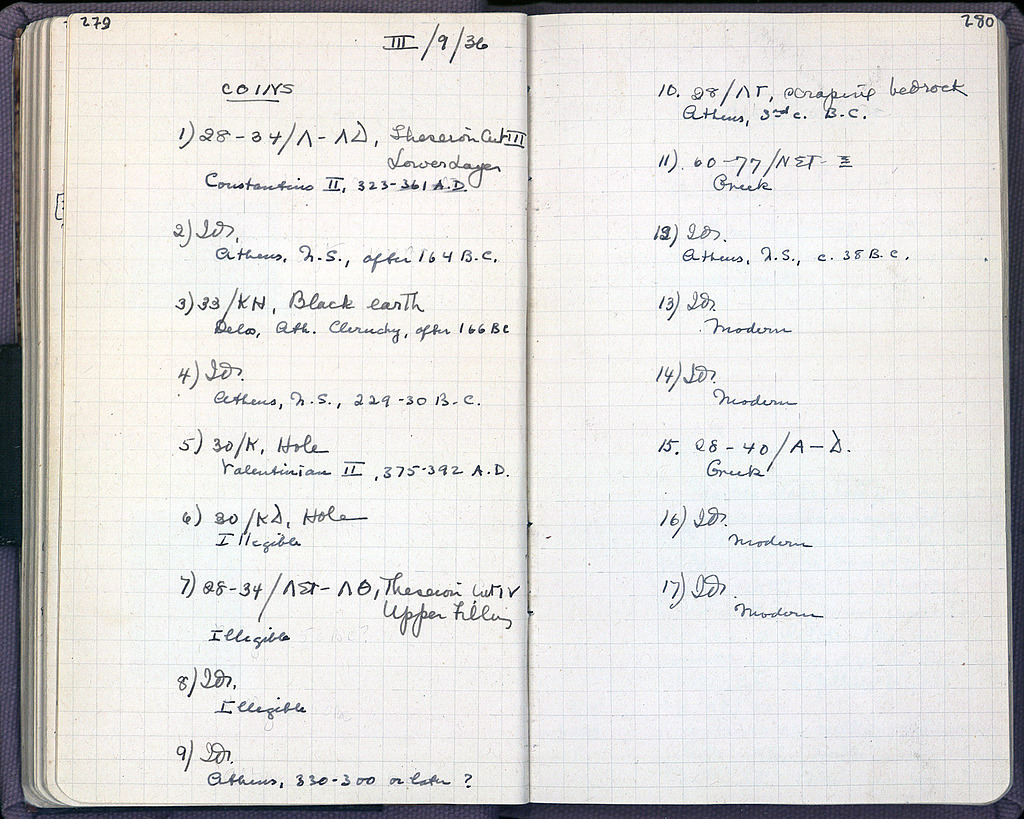 279
III/9/36
COINS
1) 28-34/Λ-ΛΔ, Theseion Cut III
Lower layer
Constantine II, 323-361 A.D.
2) Id.
Athens, N.S., after 164 B.C.
3) 33/ΚΗ, Black earth
Delos, Ath. Cleruchy, after 166 BC
4) Id.
Athens, N.S., 229-30 B.C.
5) 30/Κ, Hole
Valentinian II, 375-392 A.D.
6) 30/ΚΔ, Hole
Illegible
7) 28-34/ΛΣΤ-ΛΘ, Theseion Cut IV
Upper Filling
Illegible
8) Id.
Illegible
9) Id.
Athens, 330-300 or later ?
280
10. 28/ΛΓ, scraping bedrock
Athens, 3rd c. B.C.
11). 60-77/ΝΣΤ-Ξ
Greek
12) Id.
Athens, N.S., c. 38 B.C.
13) Id.
Modern
14) Id.
Modern
15. 28-40/Λ-Δ.
Greek
16) Id.
Modern
17) Id.
Modern